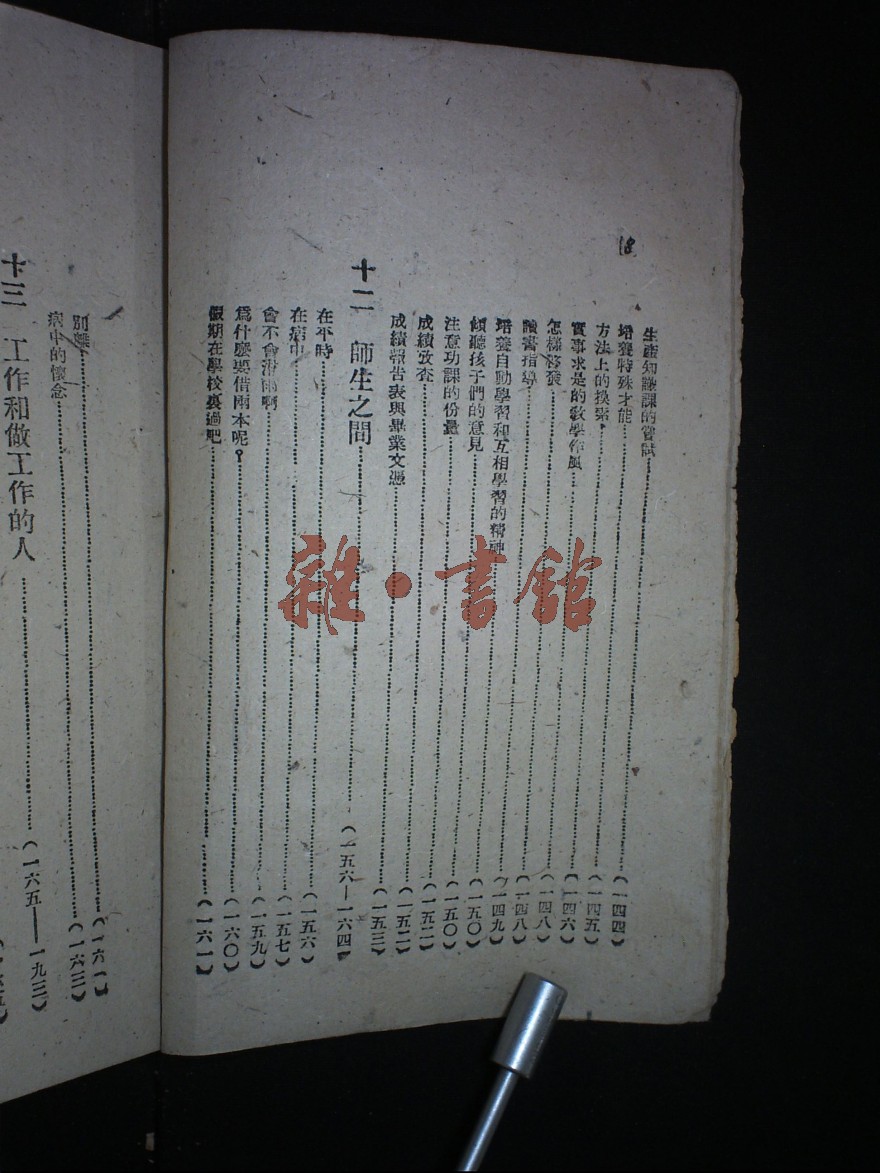 18
生產知識課的嘗試
培養特殊才能……(一四四)
方法上的摸索……(一四五)
實事求是的教學作風……(一四六)
怎樣啓發……(一四八)
讀書指導……(一四八)
培養自動學習和互相學習的精神……(一四九)
傾聽孩子們的意見……(一五〇)
注意功課的份量……(一五〇)
成績攷查……(一五二)
成績報告表與畢業文憑……(一五二)
(一五三)
十二 師生之間……(一五六—一六四)
在平時……(一五六)
在病中……(一五七)
會不會滑雨啊……(一五九)
爲什麼要借兩本呢?……(一六〇)
假期在學校裏過吧……(一六一)
別離……(一六一)
病中的懷念……(一六三)
十三 工作和做工作的人……(一六五—一九三)
雜·書館